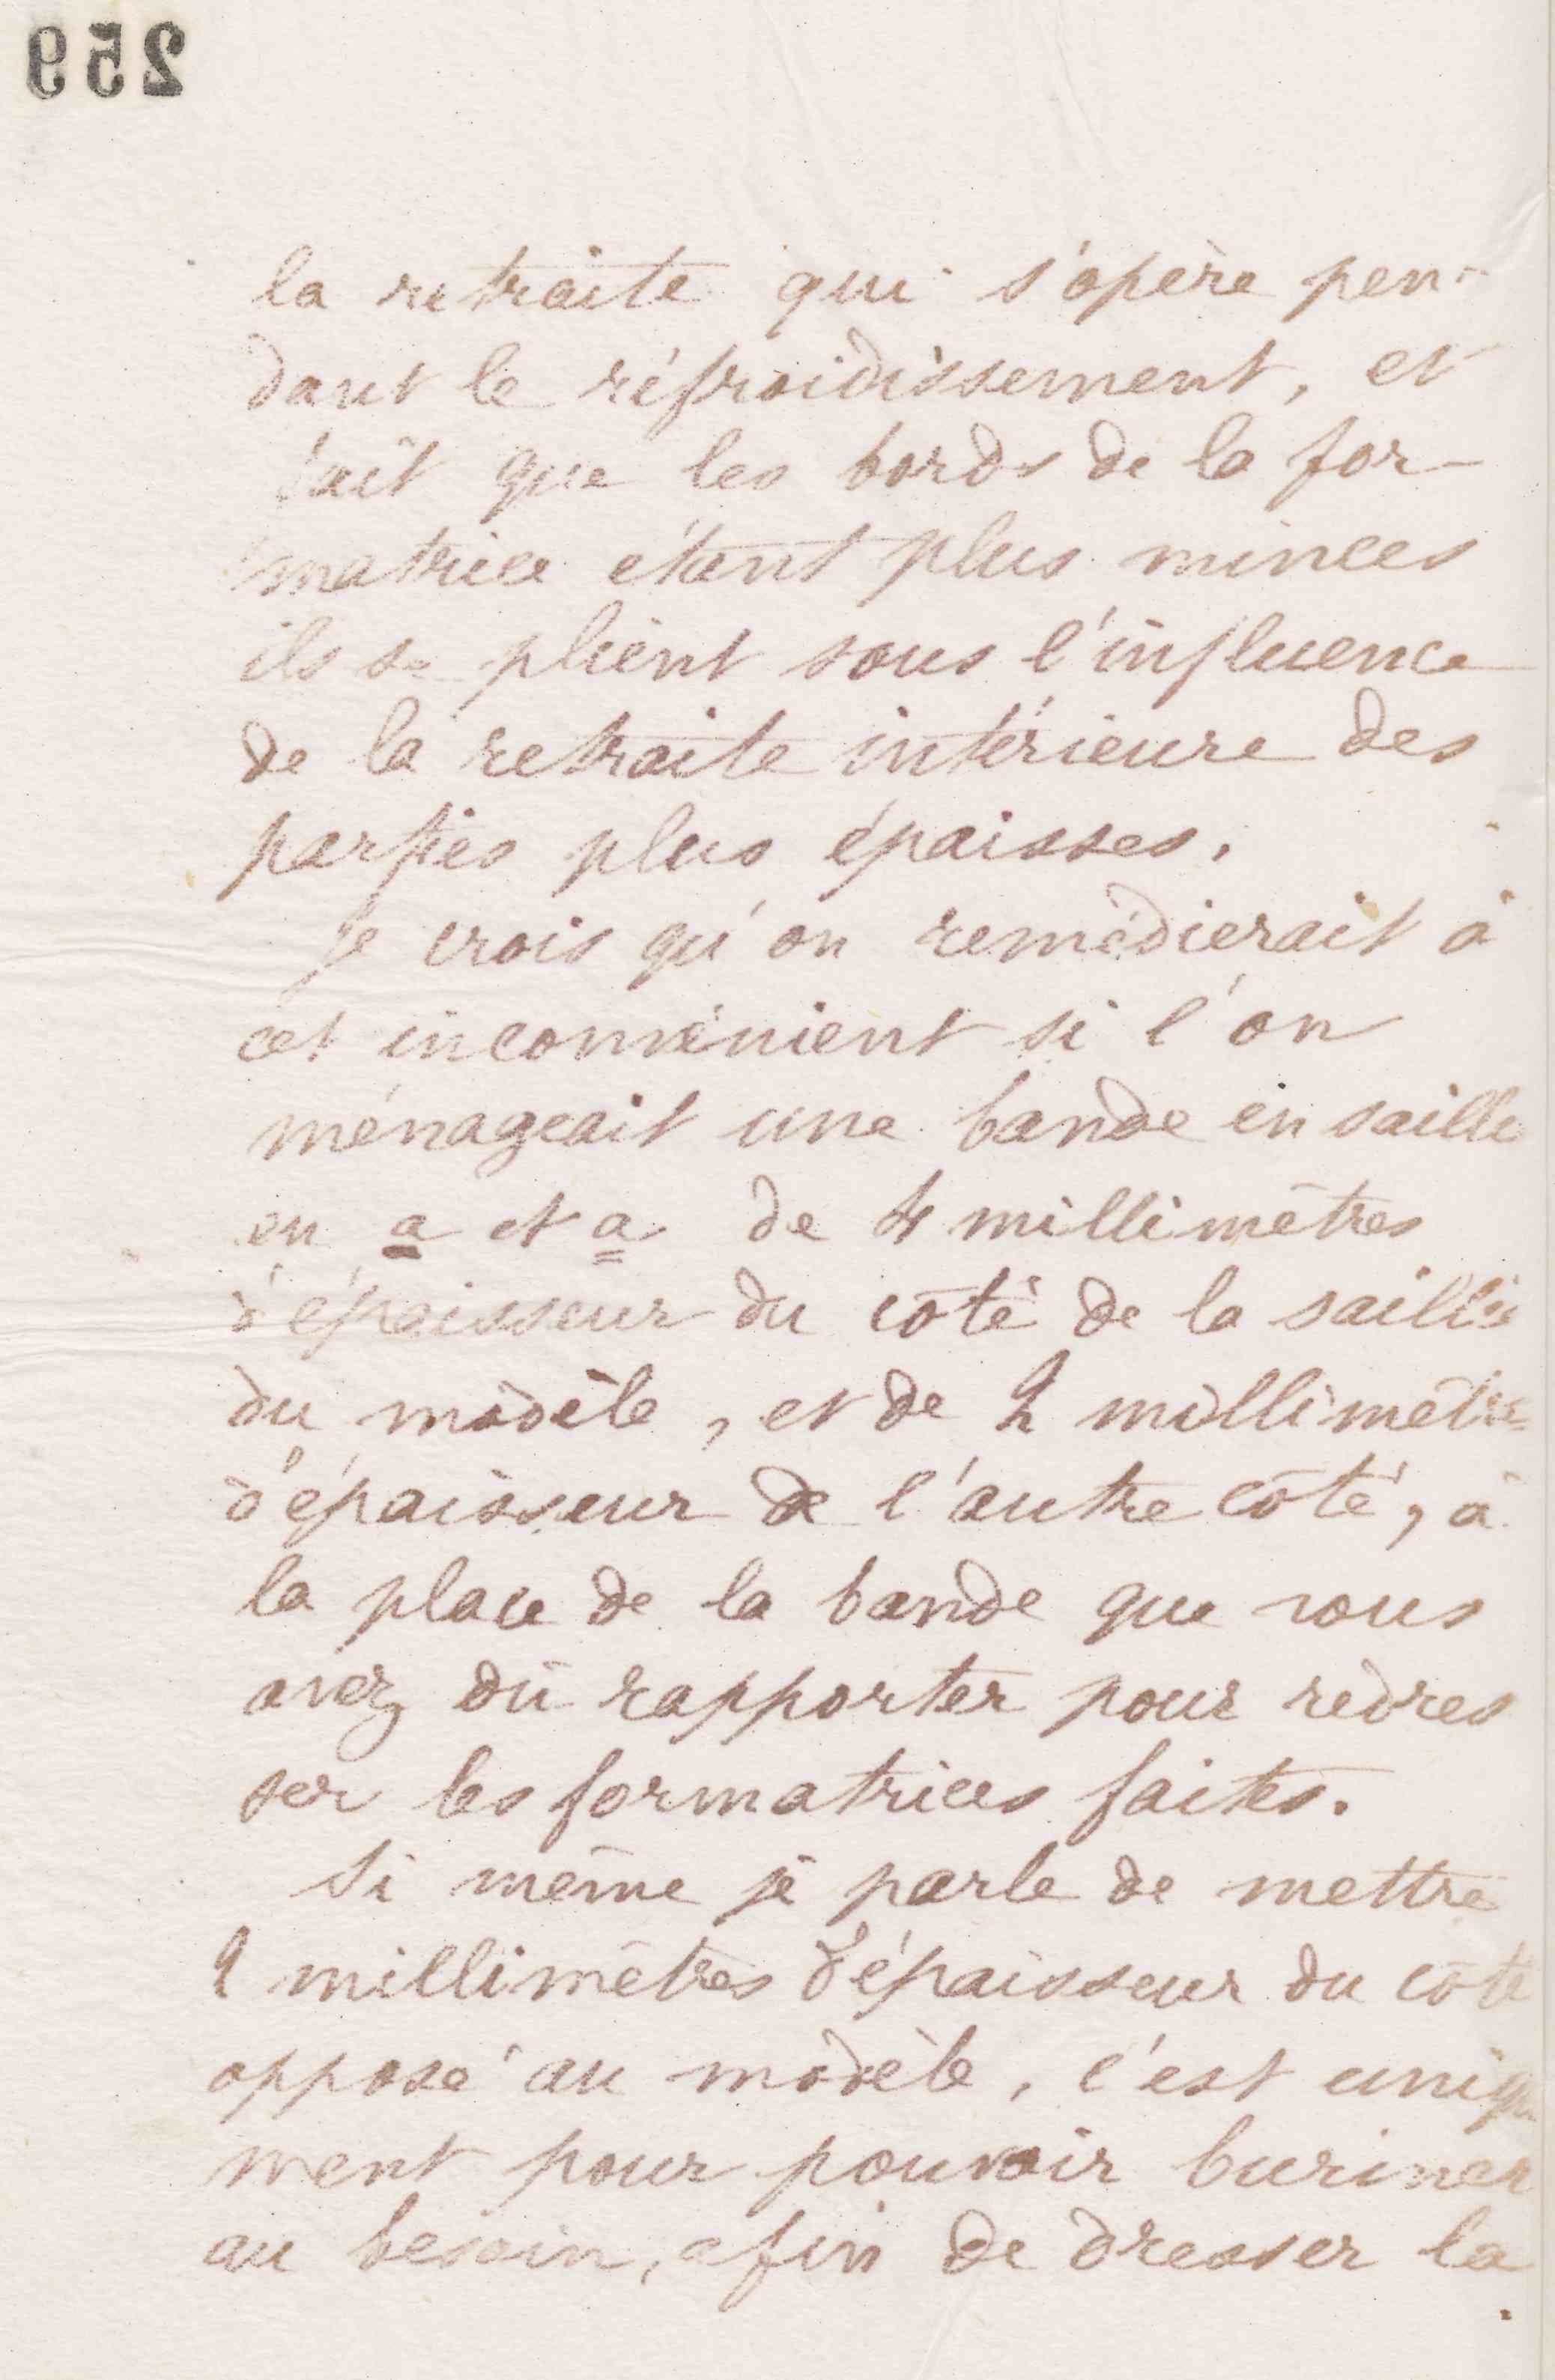 259
la retraite qui s'opère pen-
dant le réfroidissement, et
fait que les bords de la for-
matrice étant plus minces
ils se plient sous l'influence
de la retraite intérieure des
parties plus épaisses.
Je crois qu'on remédierait à
cet inconvénient si l'on
ménageait une bande en saillie
en a et a de 4 millimètres
d'épaisseur du côté de la saillie
du modèle, et de 2 millimètres
d'épaisseur de l'autre côté, à
la place de la bande que vous
avez dû rapporter pour redres
ser les formatrices faites.
Si même je parle de mettre
2 millimètres d'épaisseur du côté
opposé au modèle, c'est unique
ment pour pouvoir buriner
au besoin, afin de dresser la